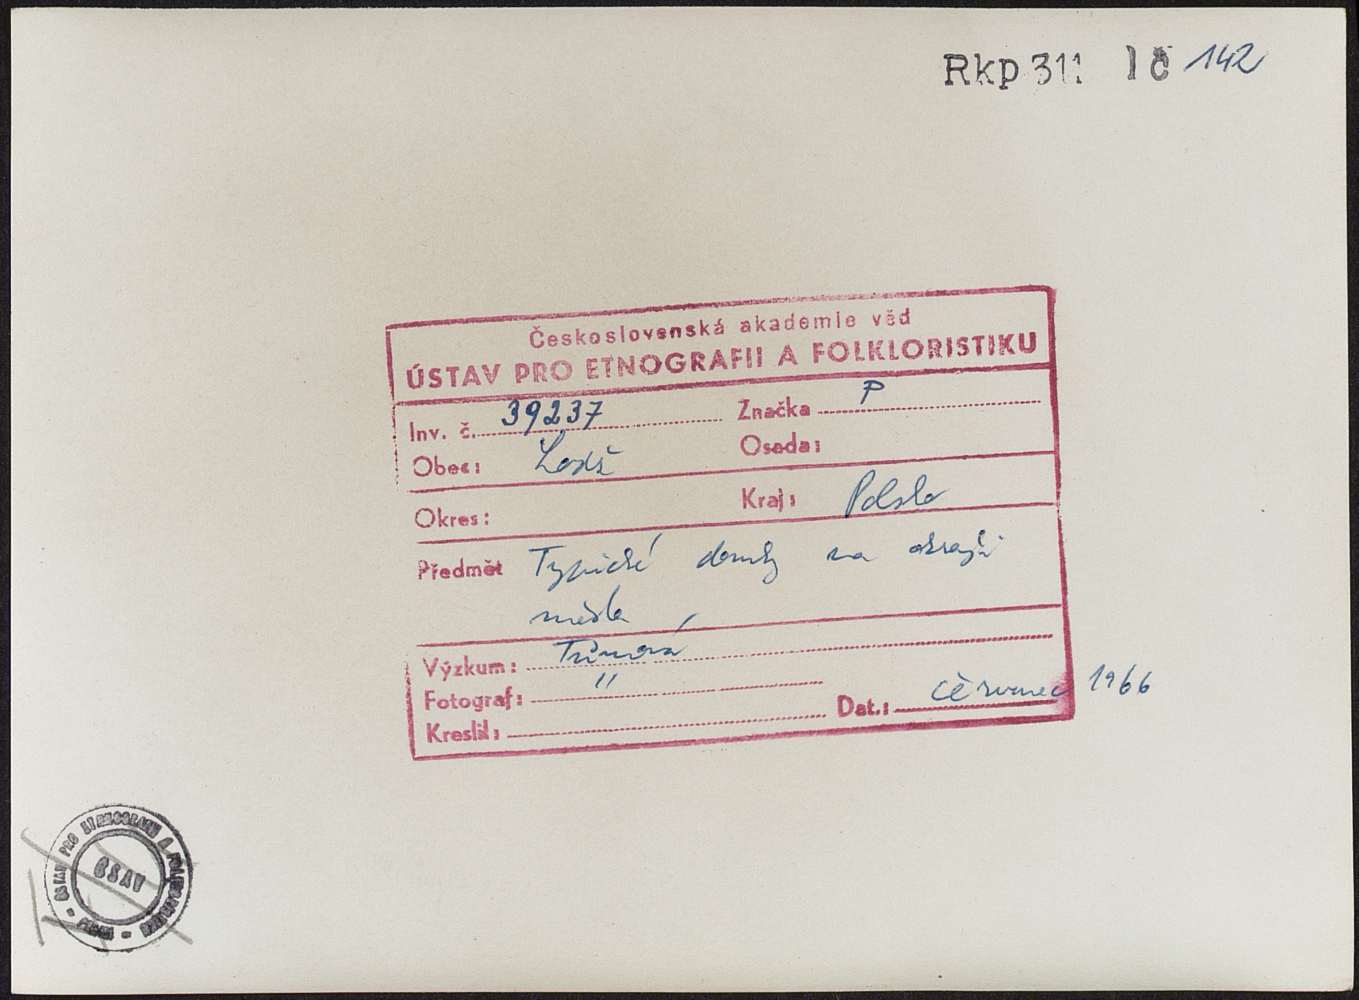 Rkp 311 IČ 142
Československá akademie věd
ÚSTAV PRO ETNOGRAFII A FOLKLORISTIKU
Inv. č. 39237 Značka P
Obec: Lodž Osada:
Okres: Kraj: Polsko
Předmět Typické domky na okraji
města
Výzkum: Tůmová
Fotograf: "
Kreslil: Dat.: červenec 1966
ÚSTAV PRO ETNOGRAFII A FOLKLORISTIKU
ČSAV
PRAHA